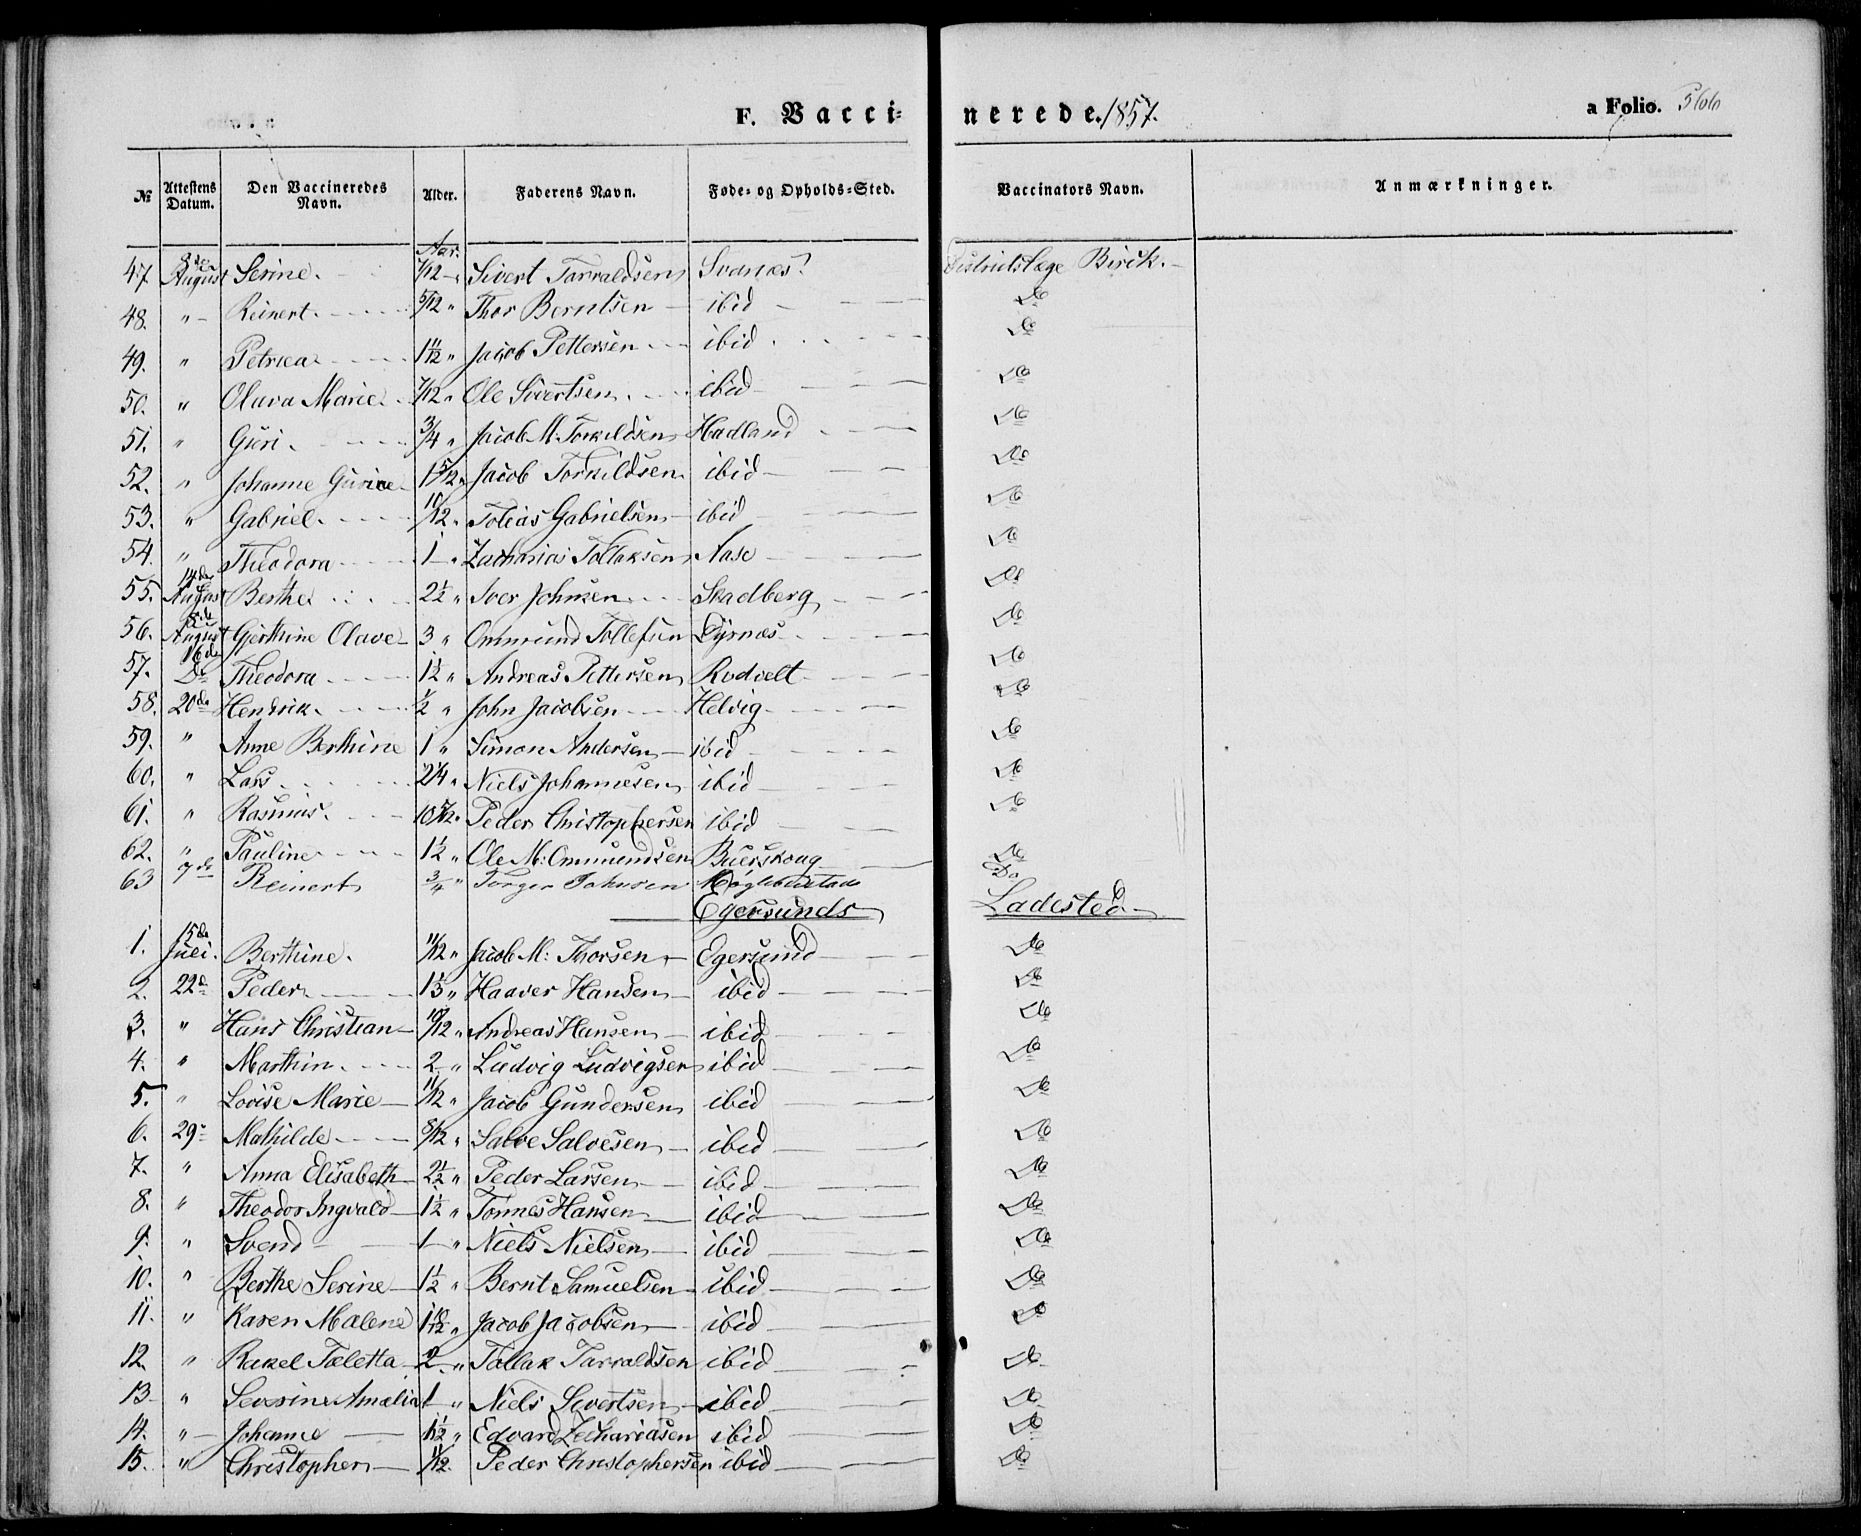 F. Vaccinerede. 1857.
a Folio.
№ Attestens Datum. Den Vaccineredes Navn. Alder. Faderens Navn. Føde- og Opholds-Sted. Vaccinators Navn. Anmærkninger.
Aar.
47 8de August Serine. 7/12 " Sivert Tarraldsen Svanæs Districtslæge Birck.
48. " Reinert. 5/12 " Thor Berntsen ibid Do
49. " Petrea 1 11/12 " Jacob Pettersen ibid Do
50. " Oluva Marie 7/12 " Ole Sivertsen ibid Do
51. " Guri. 3/4 " Jacob M. Torkildsen Hadland Do
52. " Johanne Gurine 1 5/12 " Jacob Torkildsen ibid Do
53. " Gabriel. 10/12 " Tobias Gabrielsen ibid Do
54. " Theodora 1 " Zacharias Tollaksen Aase Do
55. 14de August Berthe 2 1/2 " Iver Johnsen Skadberg Do
56. 8de August Gjerthine Olave 3 " Ommund Tollefsen Dyrnæs Do
57. 16de Do Theodora 1 1/2 " Andreas Pettersen Rodvelt Do
58. 20de Hendrik. 1/2 " John Jacobsen Helvig Do
59. " Anne Berthine 1 " Simon Andersen ibid Do
60. " Lars 2 1/4 " Niels Johannesen ibid Do
61. " Rasmus. 10 5/12 " Peder Christophersen ibid Do
62. " Pauline 1 1/2 " Ole M: Ommundsen Do
63 7de Reinert 3/4 " Torger Johnsen Møglebustad Do
Egersunds Ladested
1. 15de Juli. Berthine. 11/12 " Jacob M: Thorsen Egersund Do
2. 22de Peder " Haaver Hansen ibid Do
3. " Hans Christian 10/12 " Andreas Hansen ibid Do
4. " Marthin. 2 " Ludvig Ludvigsen ibid Do
5. " Lovise Marie 11/12 " Jacob Gundersen ibid Do
6. 29de Mathilde 8/12 " Salve Salvesen ibid Do
7. " Anna Elisabeth 2 1/2 " Peder Larsen ibid Do
8. " Theodor Ingvald 1 1/2 " Tønnes Hansen ibid Do
9. " Svend 1 " Niels Nielsen ibid Do
10. " Berthe Serine 1 1/2 " Bernt Samuelsen ibid Do
11. " Karen Malene 1 10/12 " Jacob Jacobsen ibid Do
12. " Rakel Taletta 2 " Tollak Tarraldsen ibid Do
13. " Severine Amalia 1 " Niels Sivertsen ibid Do
14. " Johanne 1 1/2 " Edvard Zachariasen ibid Do
15. " Christopher 11/12 Peder Christophersen ibid Do